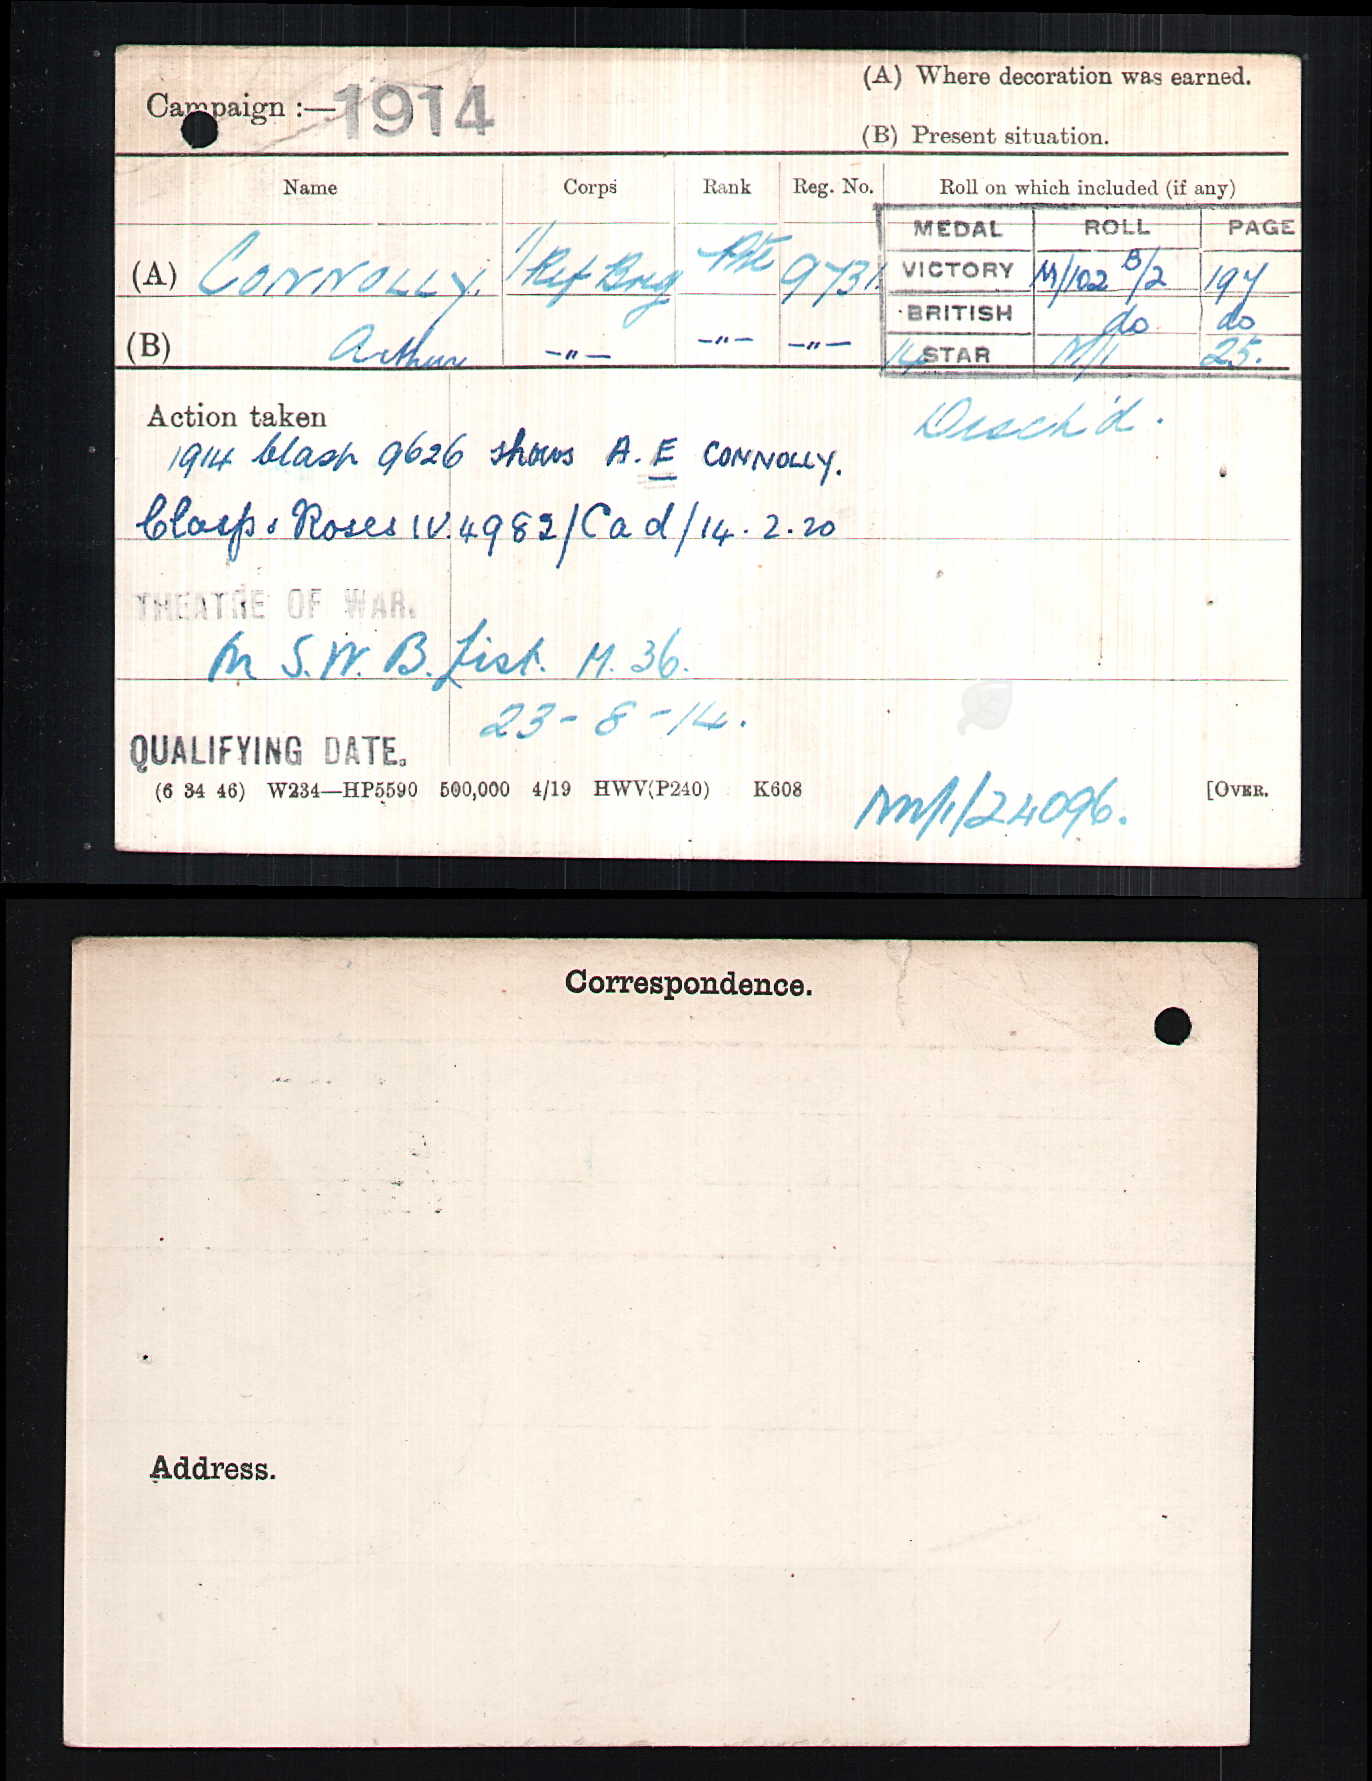 Campaign :— 1914
(A) Where decoration was earned.
(B) Present situation.
Name Corps Rank Reg. No. Roll on which included (if any)
MEDAL ROLL PAGE
(A) CONNOLLY. 1/Rif Brig Pte 9731 VICTORY M/102 B/2 197
BRITISH do do
(B) Arthur —"— —"— —"— 14 STAR M/1 25.
Action taken Disch'd.
1914 Clasp 9626 shows A. E CONNOLLY.
Clasp & Roses IV. 4982/Cad/14.2.20
THEATRE OF WAR.
S.W.B. List. M. 36.
23-8-14.
QUALIFYING DATE.
(6 34 46) W234—HP5590 500,000 4/19 HWV(P240) K608 [OVER.
24096.
Correspondence.
Address.